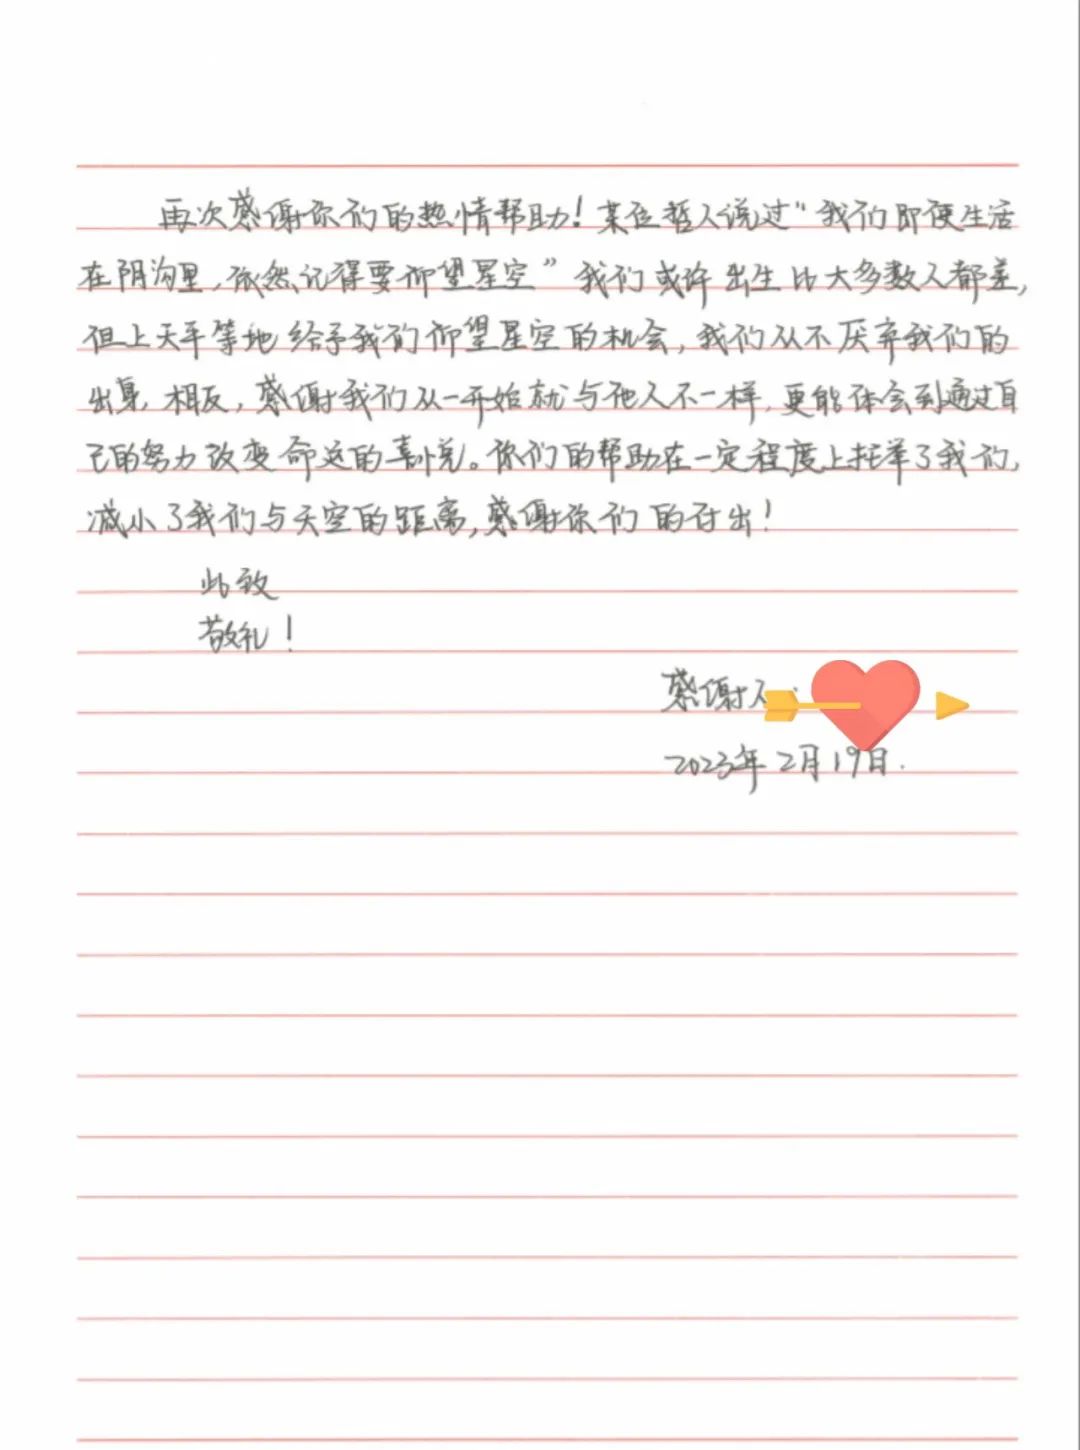 再次感谢你们的热情帮助！某位哲人说过“我们即便生活
在阴沟里，依然记得要仰望星空”我们或许出生比大多数人都差，
但上天平等地给予我们仰望星空的机会，我们从不厌弃我们的
出身，相反，感谢我们从一开始就与他人不一样，更能体会到通过自
己的努力改变命运的喜悦。你们的帮助在一定程度上托举了我们，
减小了我们与天空的距离，感谢你们的付出！
此致
敬礼！
感谢人：
2023年2月19日.